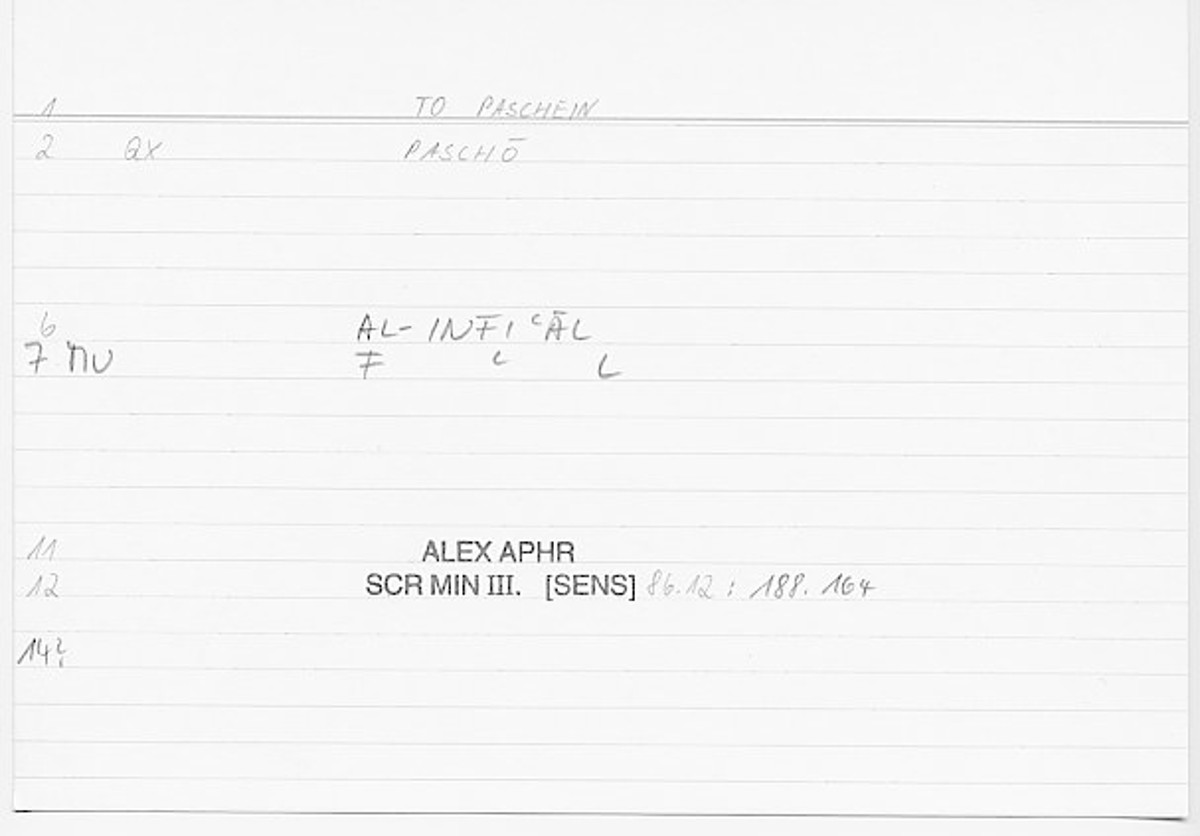 1 TO PASCHEIN
2 QX PASCHŌ
6 AL- INFIʿĀL
7 NU F ʿ L
11 ALEX APHR
12 SCR MIN III. [SENS] 86.12 : 188. 164
14?